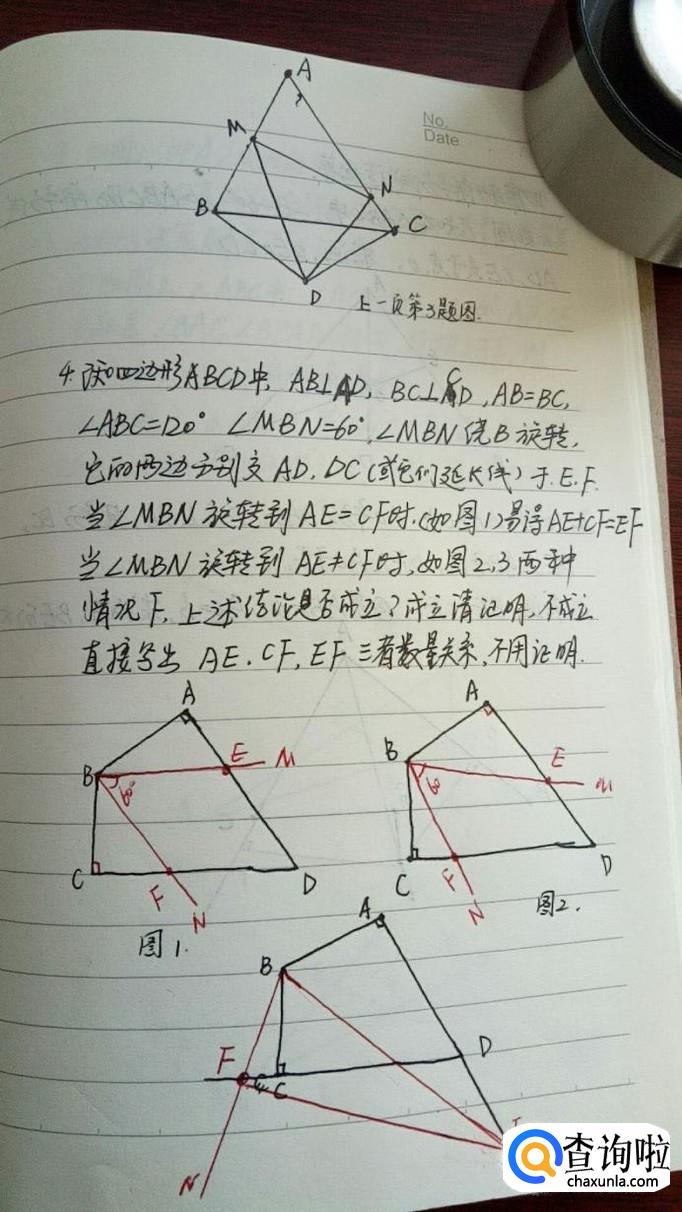 No.
Date
A
M
N
B
C
D
上一页第3题图.
4. 已知四边形ABCD中, AB⊥AD, BC⊥CD, AB=BC,
∠ABC=120° ∠MBN=60°, ∠MBN绕B旋转,
它的两边分别交AD, DC(或它们延长线)于.E.F.
当∠MBN旋转到AE=CF时.(如图1)易得AE+CF=EF
当∠MBN旋转到AE≠CF时,如图2,3两种
情况下, 上述结论是否成立?成立请证明,不成立
直接写出 AE. CF, EF 三者数量关系,不用证明.
A
B
E
M
60°
C
F
D
N
图1.
A
B
E
M
60
C
F
D
N
图2.
A
B
D
F
C
N
查询啦
chaxunla.com